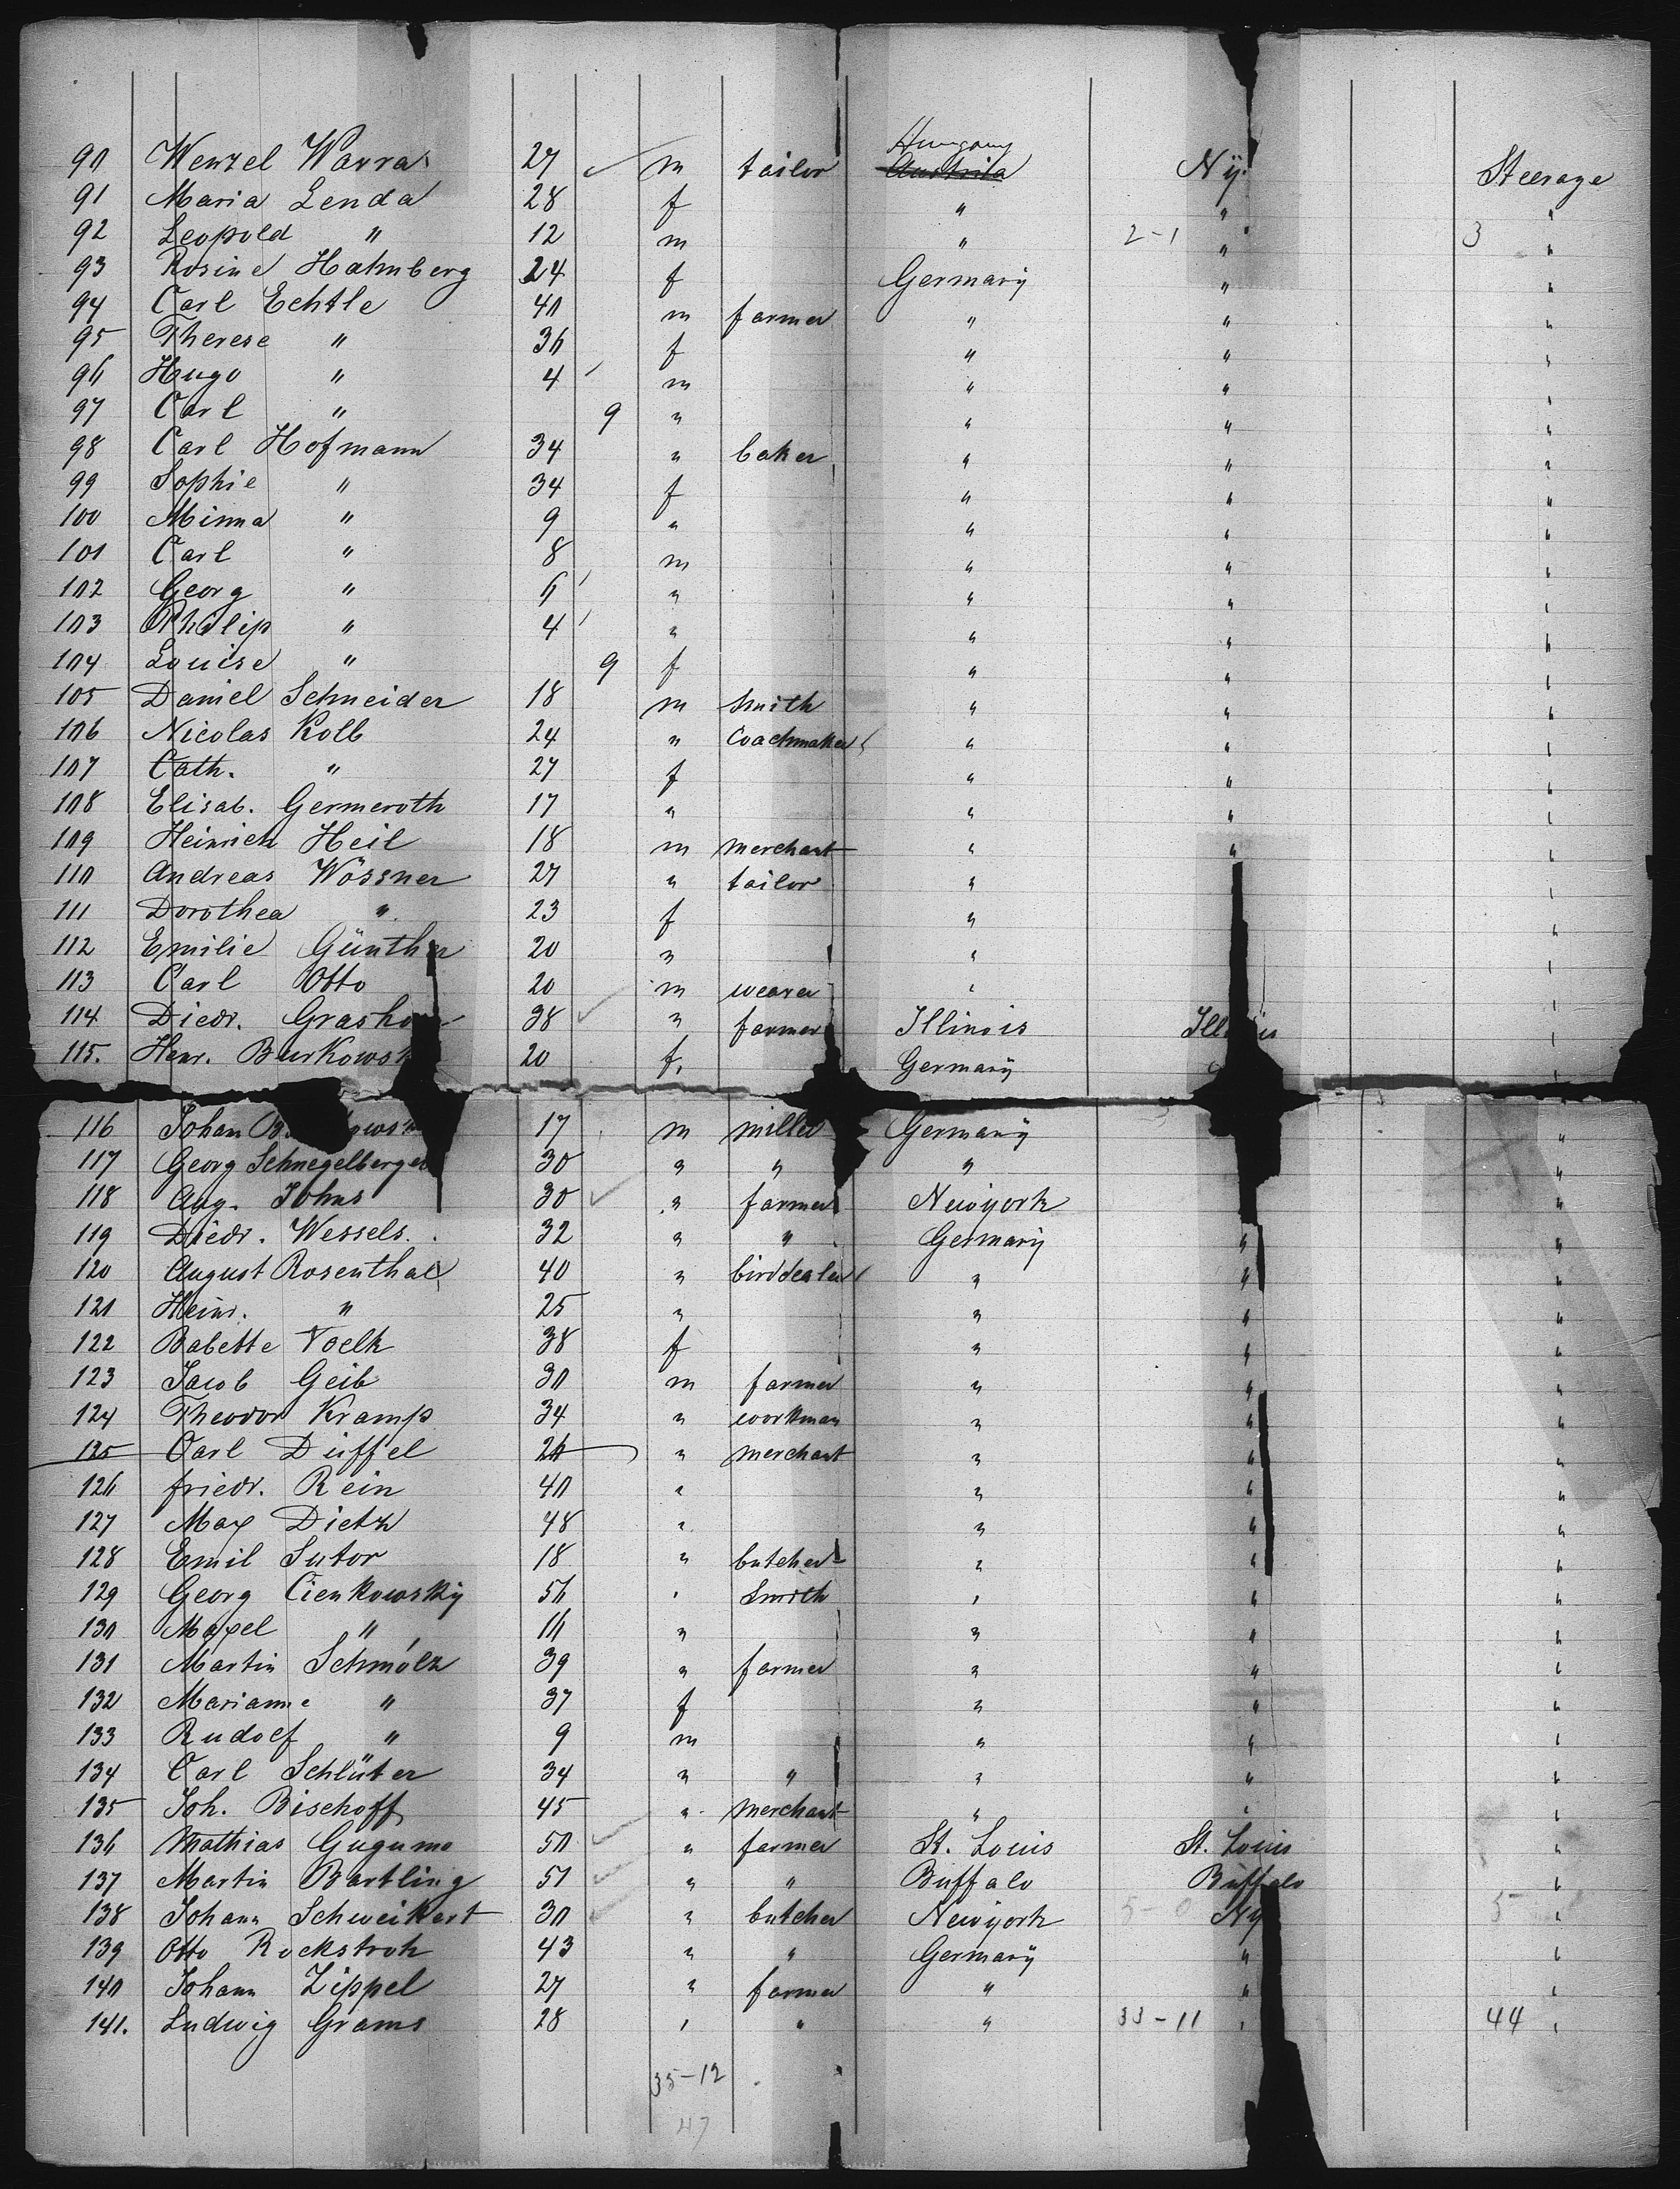 Hungary
90 Wenzel Wavra 27 m tailor Austria Ny. Steerage
91 Maria Lenda 28 f " " "
92 Leopold " 12 m " 2-1 " 3 "
93 Rosine Hahnberg 24 f Germany " "
94 Carl Echtle 40 m farmer " " "
95 Therese " 36 f " " "
96 Hugo " 4 m " " "
97 Carl " 9 " " " "
98 Carl Hofmann 34 " baker " " "
99 Sophie " 34 f " " "
100 Minna " 9 " " " "
101 Carl " 8 m " " "
102 Georg " 6 " " " "
103 Philip " 4 " " " "
104 Louise " 9 f " " "
105 Daniel Schneider 18 m smith " " "
106 Nicolas Kolb 24 " Coachmaker " " "
107 Cath. " 27 f " " "
108 Elisab. Germeroth 17 " " " "
109 Heinrich Heil 18 m merchant " " "
110 Andreas Wössner 27 " tailor " "
111 Dorothea " 23 f " "
112 Emilie Günther 20 " " "
113 Carl Otto 20 m weaver " "
114 Diedr. 38 " farmer Illinois Illinois "
115. Henr. 20 f. Germany "
116 Johan 17 m miller Germany "
117 Georg Schnegelberger 30 " " " "
118 Aug. Johns 30 " farmer Newyork "
119 Diedr. Wessels. 32 " " Germany " "
120 August Rosenthal 40 " birddealer " " "
121 Heinr. " 25 " " " "
122 Babette Voelk 38 f " " "
123 Jacob Geib 30 m farmer " " "
124 Theodor Kramp 34 " workman " " "
125 Carl Düffel 26 " merchant " " "
126 friedr. Rein 40 " " " "
127 Max Dietz 48 " " " "
128 Emil Sutor 18 " butcher " " "
129 Georg Cienkowsky 56 " Smith " " "
130 " 16 " " " "
131 Martin Schmölz 39 " farmer " " "
132 Marianne " 37 f " " "
133 Rudolf " 9 m " " "
134 Carl Schlüter 34 " " " " "
135 Joh. Bischoff 45 " merchant " " "
136 Mathias Gugumo 50 " farmer St. Louis St. Louis "
137 Martin Bartling 51 " " Buffalo Buffalo "
138 Johann Schweikert 30 " butcher Newyork 5-0 Ny 5 "
139 Otto Rockstroh 43 " " Germany " "
140 Johann Zippel 27 " farmer " " "
141. Ludwig Grams 28 " " " 33-11 " 44 "
35-12
47